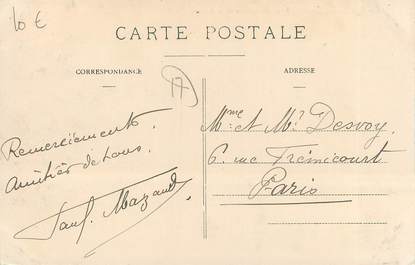 10 €
CARTE POSTALE
CORRESPONDANCE
ADRESSE
17
Remerciements.
Amitiés de tous.
Paul Mazaud
Mme et Mr Desvoy,
6. rue Frémicourt
Paris